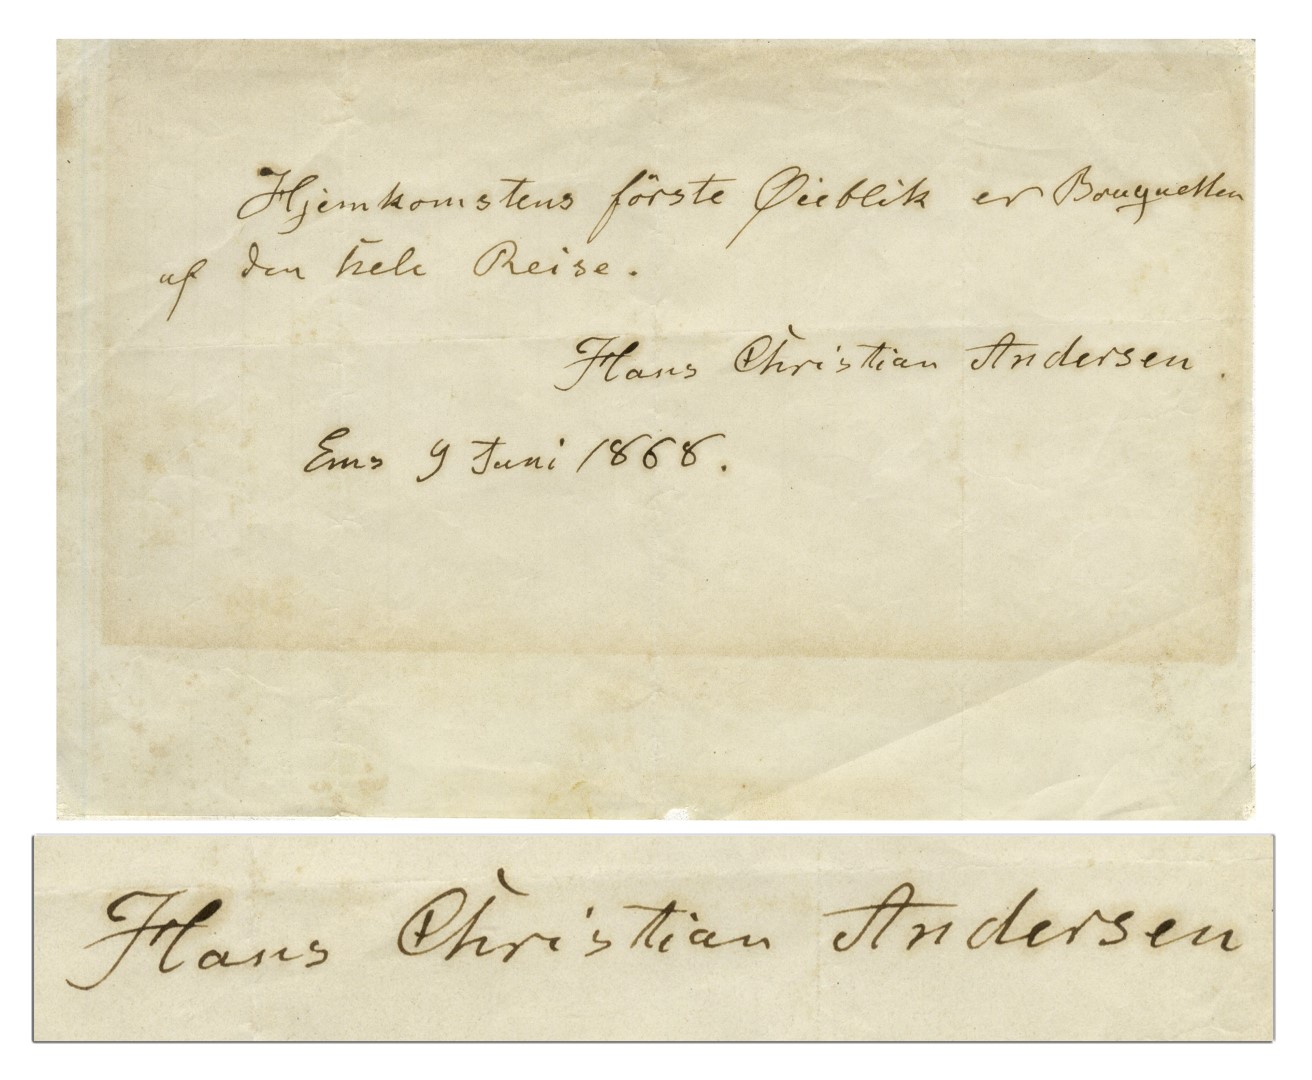 Hjemkomstens förste Øieblik er Bouquetten
af den hele Reise.
Hans Christian Andersen.
Ems 9 Juni 1868.
Hans Christian Andersen